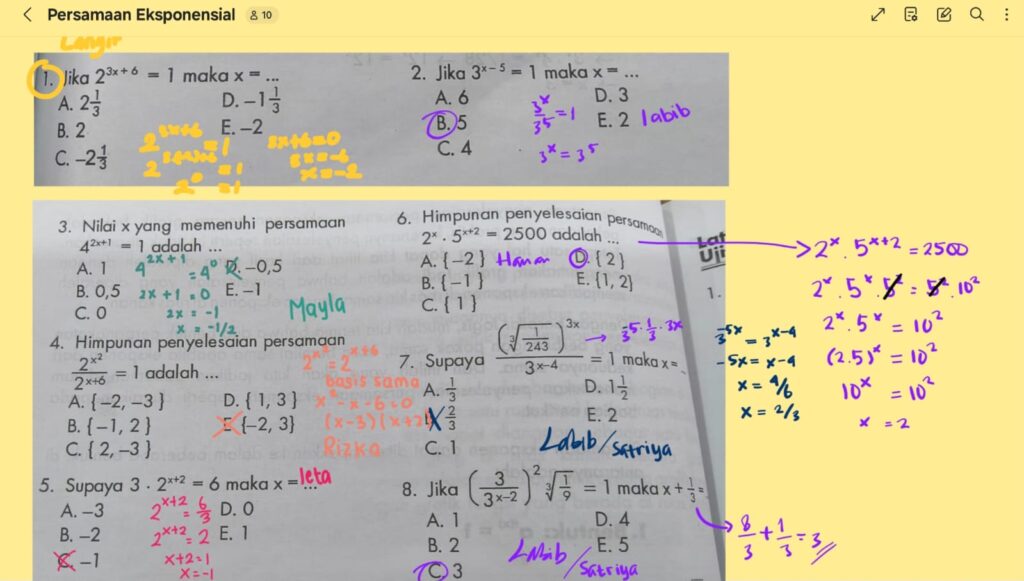 Persamaan Eksponensial 10
1. Jika 2^{3x+6} = 1 maka x = ...
A. 2 1/3 D. -1 1/3
B. 2 E. -2
C. -2 1/3
3x+6=0
3x=-6
x=-2
2^0 = 1
2. Jika 3^{x-5} = 1 maka x = ...
A. 6 D. 3
B. 5 E. 2
C. 4
3^x/3^5 = 1
3^x = 3^5
Labib
3. Nilai x yang memenuhi persamaan
4^{2x+1} = 1 adalah ...
A. 1 D. -0,5
B. 0,5 E. -1
C. 0
4^{2x+1} = 4^0
2x+1=0
2x=-1
x=-1/2
Mayla
4. Himpunan penyelesaian persamaan
2^{x²}/2^{x+6} = 1 adalah ...
A. {-2, -3} D. {1, 3}
B. {-1, 2} E. {-2, 3}
C. {2, -3}
2^{x²} = 2^{x+6}
basis sama
x²-x-6=0
(x-3)(x+2)
Rizka
5. Supaya 3 . 2^{x+2} = 6 maka x = ...
leta
A. -3 D. 0
B. -2 E. 1
C. -1
2^{x+2} = 6/3
2^{x+2} = 2
x+2=1
x=-1
6. Himpunan penyelesaian persamaan
2^x . 5^{x+2} = 2500 adalah ...
A. {-2} D. {2}
B. {-1} E. {1, 2}
C. {1}
2^x . 5^{x+2} = 2500
2^x . 5^x . 5² = 5² . 10²
2^x . 5^x = 10²
(2.5)^x = 10²
10^x = 10²
x = 2
7. Supaya (∛(1/243))^{3x}/3^{x-4} = 1 maka x =
A. 1/3 D. 1 1/2
B. 2/3 E. 2
C. 1
3^{-5 . 1/3 . 3x}
3^{-5x} = 3^{x-4}
-5x = x-4
x = 4/6
x = 2/3
Labib/Satriya
8. Jika (3/3^{x-2})² ∛(1/9) = 1 maka x + 1/3 =
A. 1 D. 4
B. 2 E. 5
C. 3
Labib/Satriya
8/3 + 1/3 = 3
Lat
Uji
1.